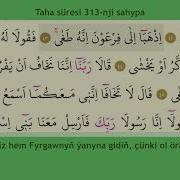 Taha süresi 313-nji sahypa
ٱذْهَبَآ إِلَىٰ فِرْعَوْنَ إِنَّهُۥ طَغَىٰ ٤٣ فَقُولَا لَهُ
كَّرُ أَوْ يَخْشَىٰ ٤٤ قَالَا رَبَّنَآ إِنَّنَا نَخَافُ أَن يَفْرُ
٤٥ قَالَ لَا تَخَافَآ إِنَّنِى مَعَكُمَآ أَسْمَعُ
ولَآ إِنَّا رَسُولَا رَبِّكَ فَأَرْسِلْ مَعَنَا بَنِىٓ إِس
iz hem Fyrgawnyň ýanyna gidiň, çünki ol öra